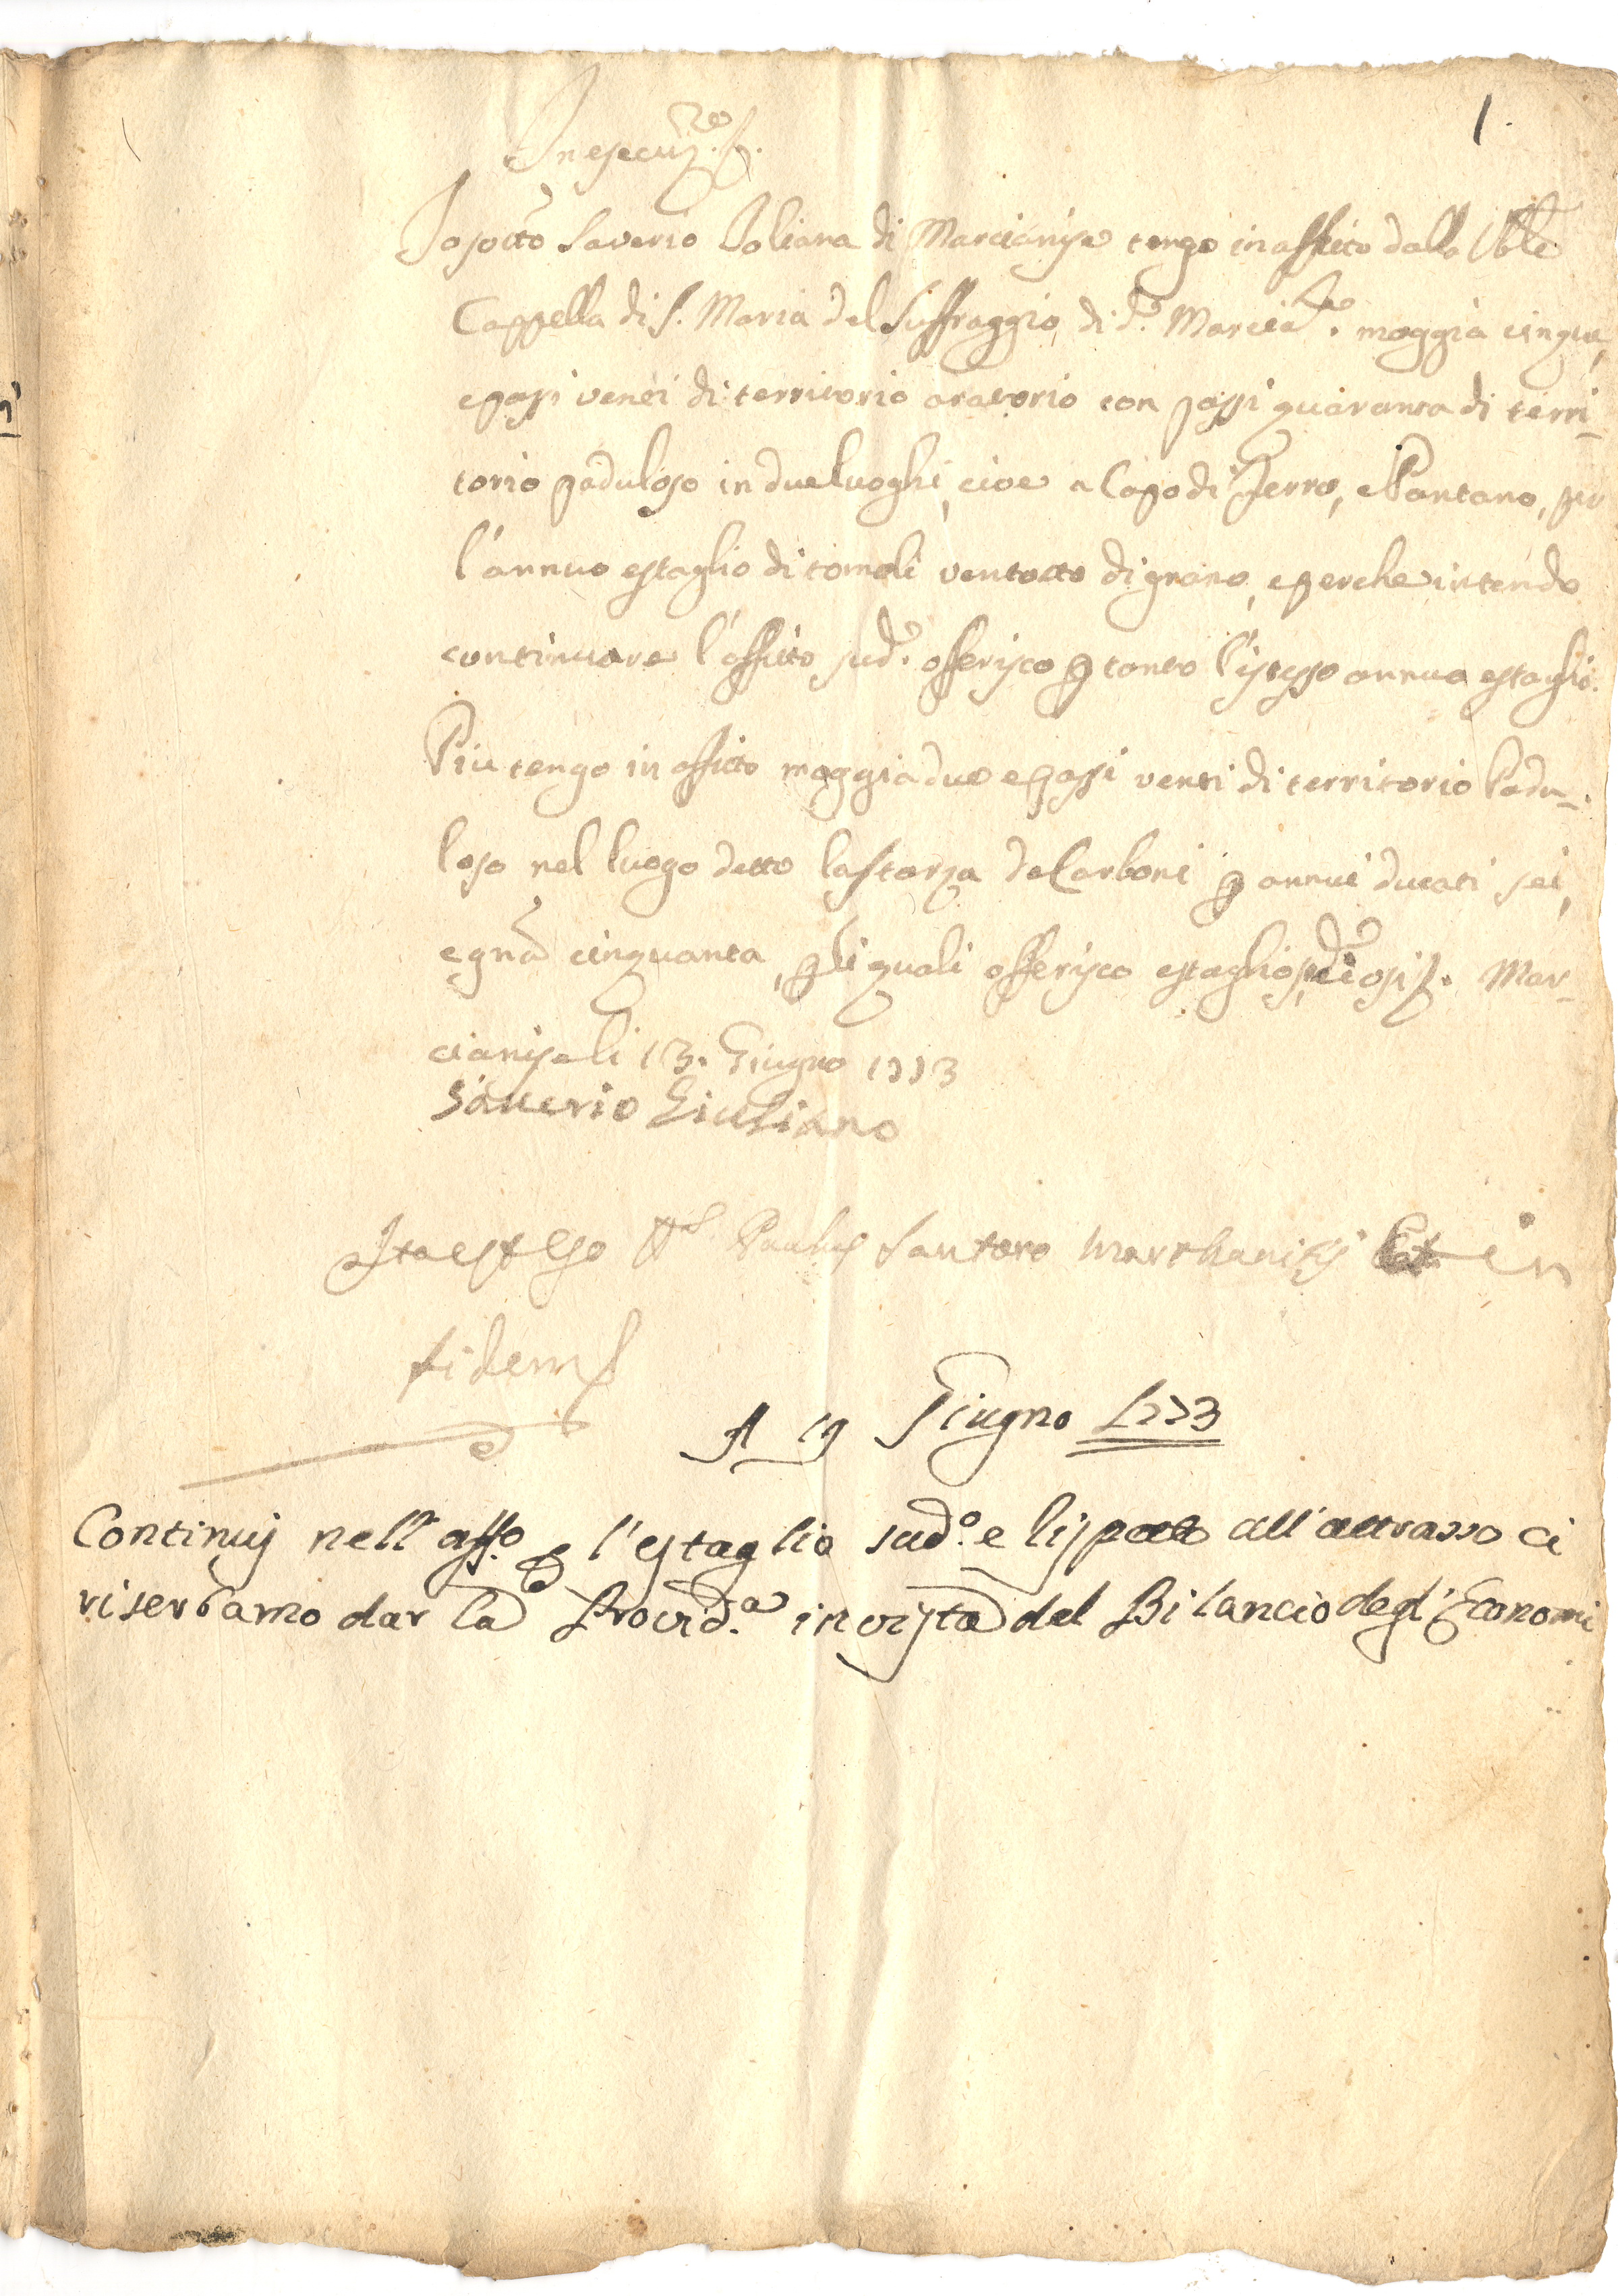 1.
In esecuz.ne &.
Io sotto Saverio Joliana di Marcianise tengo in affitto dalla Vble
Cappella di S. Maria del Suffraggio di d.a Marcia.se moggia cinque,
e passi venti di territorio aratorio con passi quaranta di terri-
torio paduloso in due luoghi, cioe a Capo di Ferro, e Pantano, per
l'annuo estaglio di tomola ventotto di grano, e perche intendo
continuare l'affitto sud.o offerisco p tanto l'istesso annuo estaglio.
Piu tengo in affitto moggia due e passi venti di territorio Padu-
loso nel luogo detto la Starza de Carboni p annui ducati sei,
e gna cinquanta, p li quali offerisco estaglio, Mar-
cianise li 13. Giugno 1773
Saverio Giuliano
Ita est Ego Nr Paulus Santoro Marchanisij Et in
fidem
A 19 Giugno 1773
Continuj nell'aff.o p l'estaglio sud.o e rispetto all'attrasso ci
riserbiamo dar la Provid.a in vista del Bilancio degl'Economi